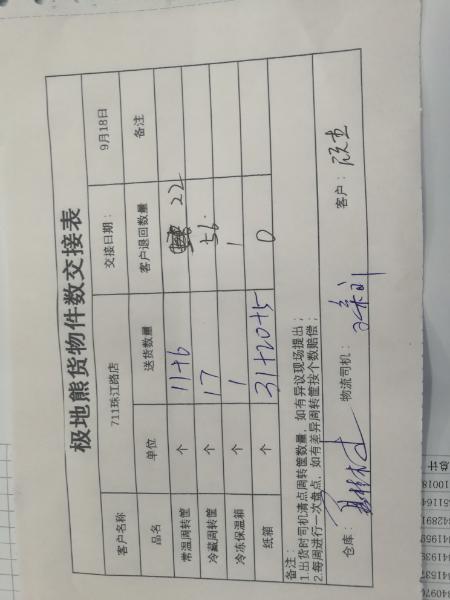 极地熊货物件数交接表
客户名称 711珠江路店 交接日期: 9月18日
品名 单位 送货数量 客户退回数量 备注
常温周转筐 个 11+6 22
冷藏周转筐 个 17 56.
冷冻保温箱 个 1 1
纸箱 个 31+20+5 0
备注:
1.出货时司机清点周转筐数量,如有异议现场提出;
2.每周进行一次盘点,如有差异周转筐按个数赔偿;
仓库: 物流司机: 客户:
总计
10018